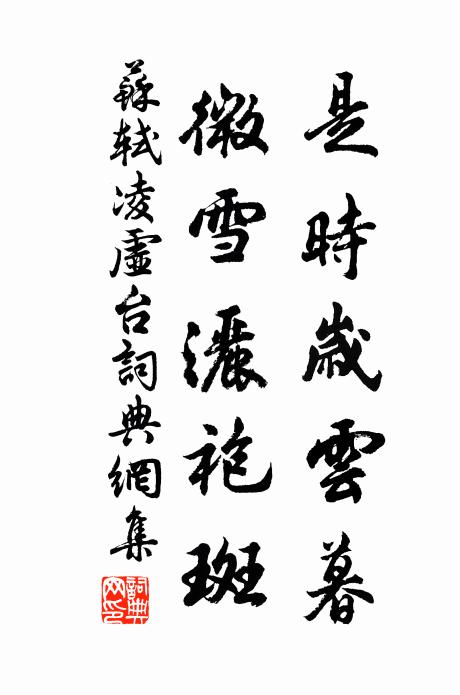 是時歲雲暮
微雪灑袍斑
蘇軾凌虛台詞典網集
詞典网印